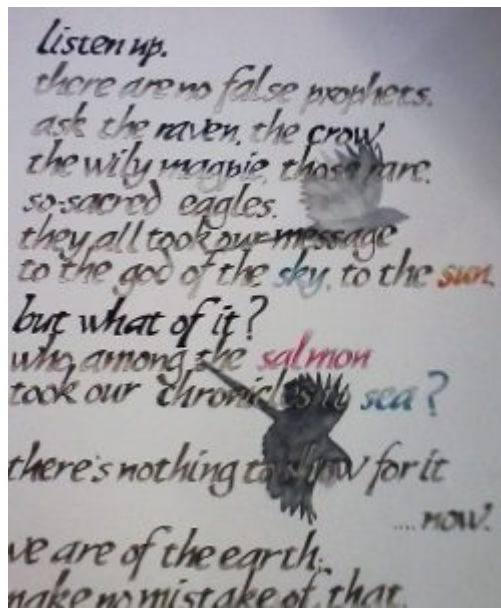 listen up.
there are no false prophets.
ask the raven, the crow
the wily magpie, those rare,
so-sacred eagles.
they all took our message
to the god of the sky, to the sun.
but what of it?
who among the salmon
took our chronicles to sea?
there's nothing to show for it
.... now.
we are of the earth;
make no mistake of that